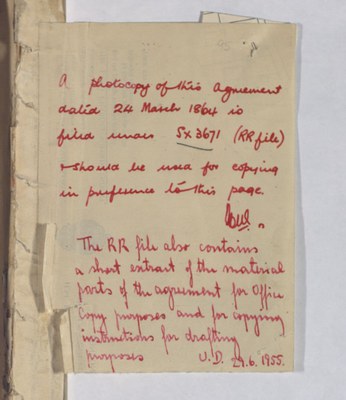 A photocopy of this agreement
dated 24 March 1864 is
filed under SX3671 (RR file)
& should be used for copying
in preference to this page.
The RR file also contains
a short extract of the material
parts of the agreement for Office
Copy purposes and for copying
instructions for drafting
purposes U.D. 29.6.1955.